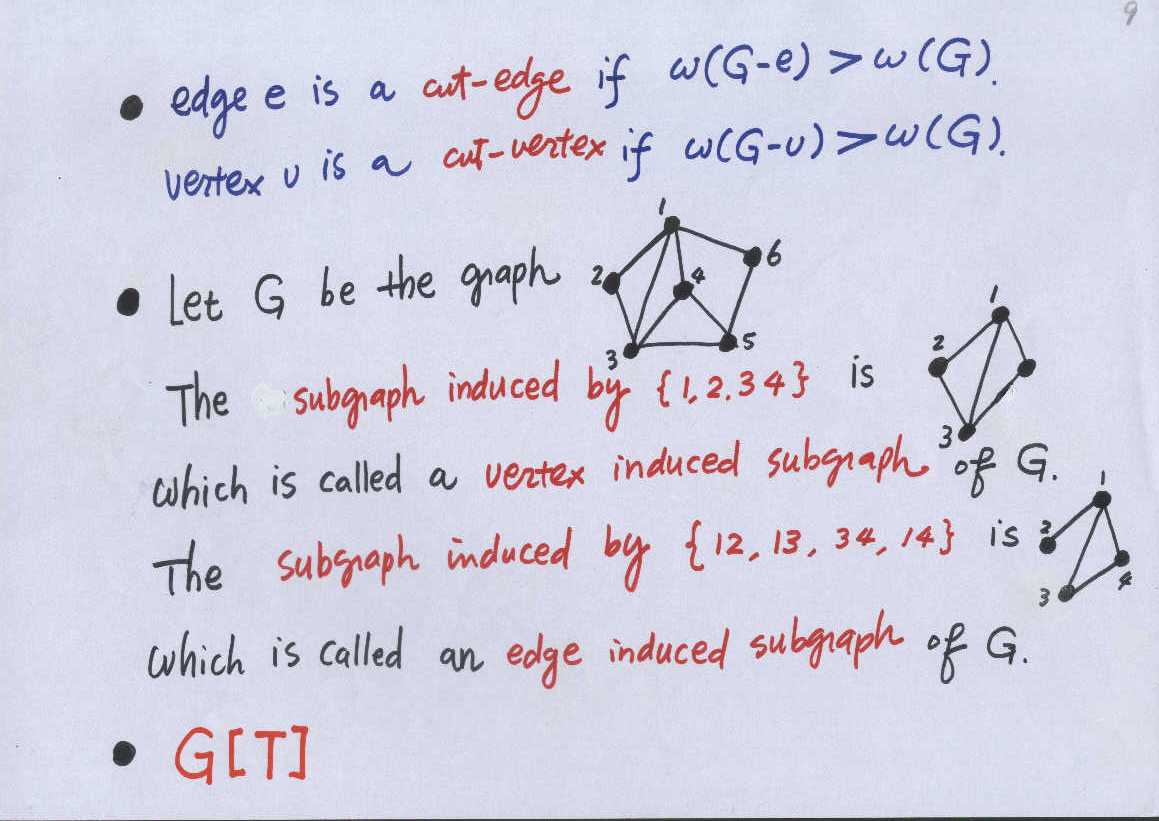 9
• edge e is a cut-edge if ω(G-e) > ω(G).
vertex v is a cut-vertex if ω(G-v) > ω(G).
1
6
2
4
• Let G be the graph
5
3
1
2
The subgraph induced by {1,2.34} is
3
which is called a vertex induced subgraph of G.
1
2
The subgraph induced by {12, 13, 34, 14} is
3
4
which is called an edge induced subgraph of G.
• G[T]